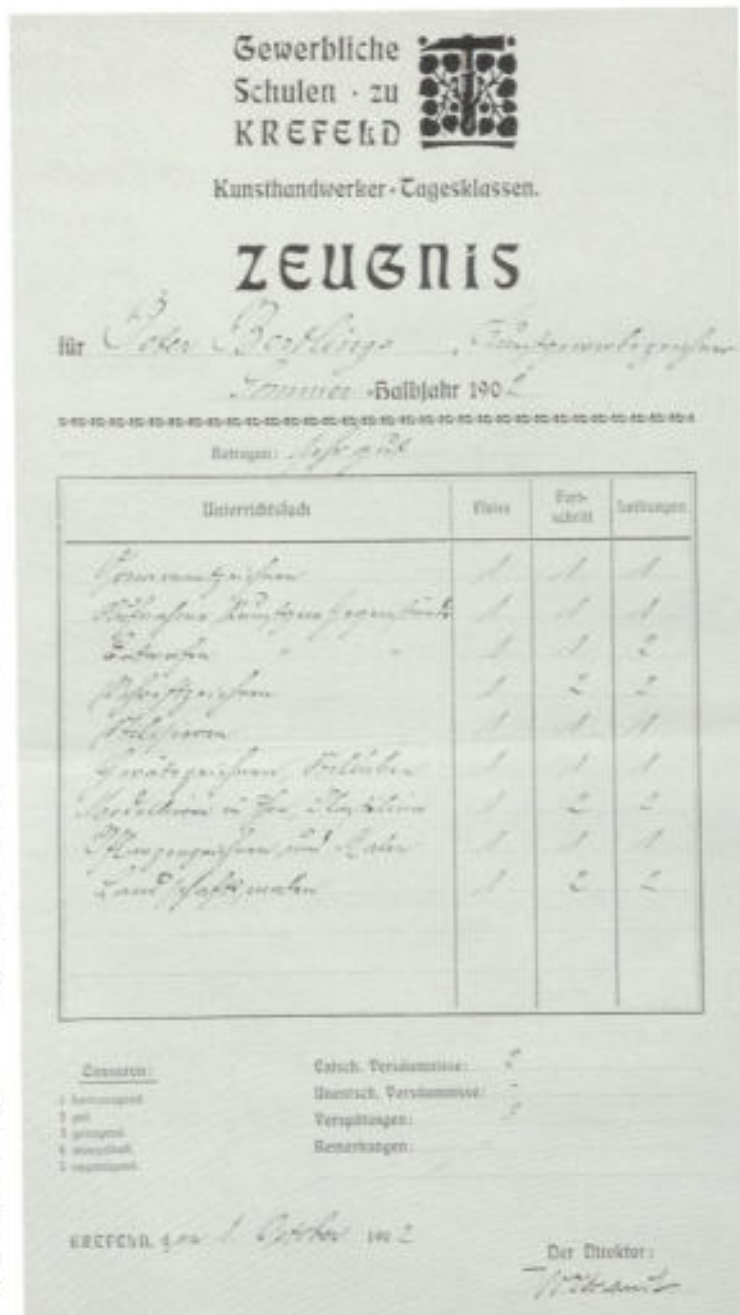 Gewerbliche
Schulen · zu
KREFELD
Kunsthandwerker-Tagesklassen.
ZEUGNIS
für Peter Bertlings Kunstgewerbezeichner
Sommer-Halbjahr 1902
Betragen: Sehr gut
Unterrichtsfach Fleiss Fort-schritt Leistungen
Ornamentzeichnen 1 1 1
1 1 1
Entwerfen " " 1 1 2
Schriftzeichnen 1 2 2
Stilisieren 1 1 1
1 1 1
Modellieren in Ton, Plastilina 1 2 2
Pflanzenzeichnen und Malen 1 1 1
Landschaftsmalen 1 2 2
Censuren:
1 hervorragend
2 gut
3 genügend
4 mangelhaft
5 ungenügend.
Entsch. Versäumnisse: 2
Unentsch. Versäumnisse: -
Verspätungen:
Bemerkungen:
KREFELD, den 1. October 1902
Der Direktor: